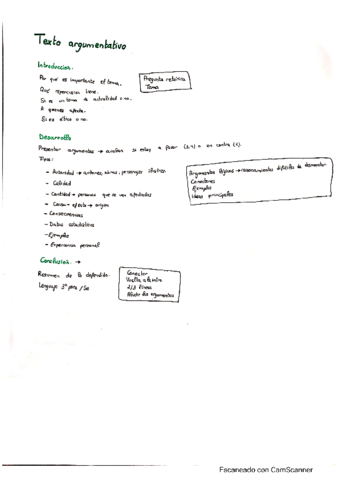 Texto argumentativo
Introducción.
Por qué es importante el tema.
Qué repercusión tiene.
Si es un tema de actualidad o no.
A quienes afecta.
Si es ético o no.
Pregunta retórica
Tema
Desarrollo
Presentar argumentos → cuestión si estás a favor (2,4) o en contra (2).
Tipos:
- Autoridad →
- Calidad
- Cantidad → personas que se ven afectadas
- Causa - efecto → origen
- Consecuencias
- Datos estadísticos
- Ejemplos
- Experiencia personal
Argumentos lógicos → razonamientos difíciles de desmontar
Conectores
Ejemplos
Ideas principales
Conclusión →
Resumen de lo defendido.
Lenguaje 3ª pers / Se
Conector
Vuelta a la intro
2/3 líneas
Añadir dos argumentos
Escaneado con CamScanner